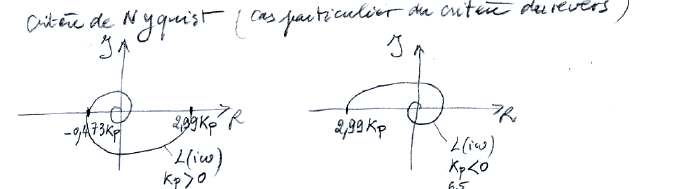 Critère de Nyquist (cas particulier du critère du revers)
J
J
-0,473Kp
2,99Kp
R
L(iω)
Kp>0
2,99Kp
R
L(iω)
Kp<0